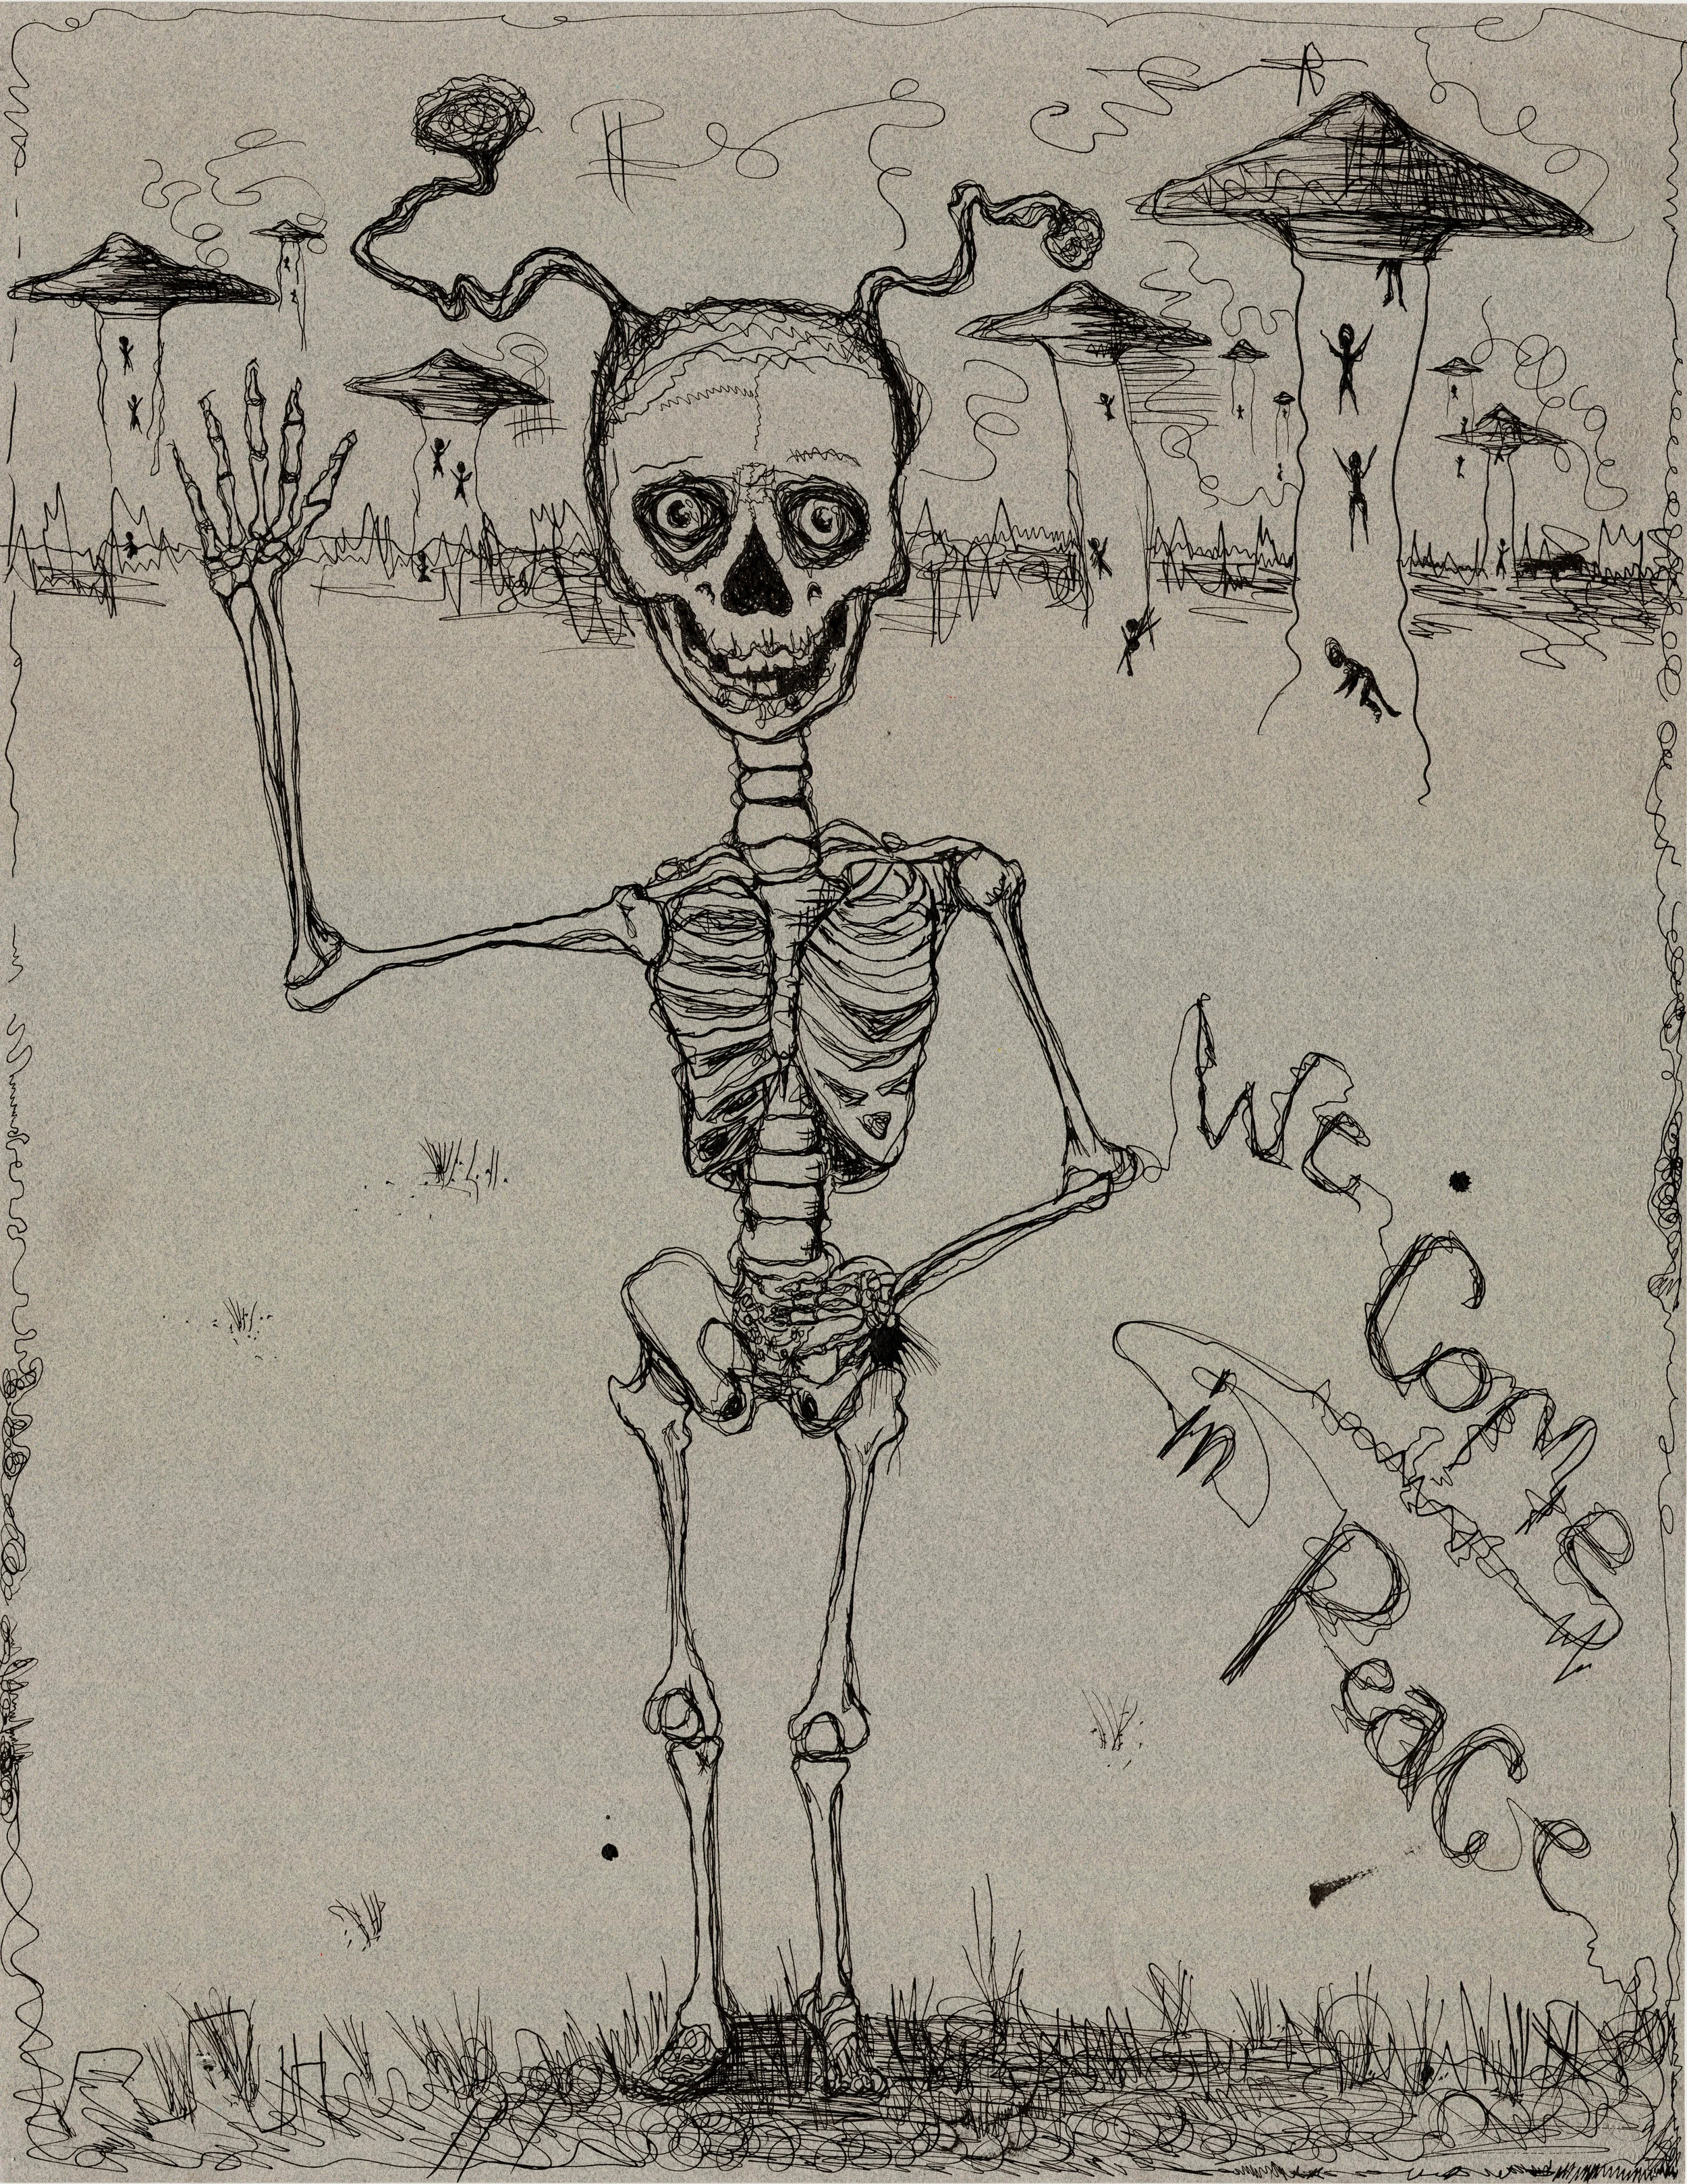 We
Come
in
Peace